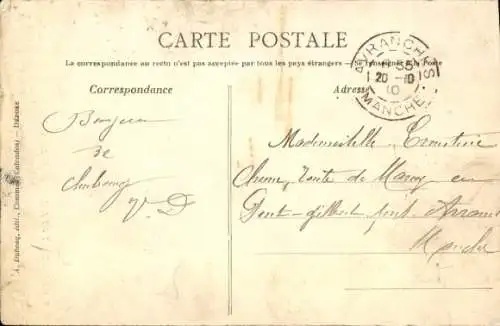 CARTE POSTALE
La correspondance au recto n'est pas acceptée par tous les pays étrangers — Se renseigner à la Poste
Correspondance
Adresse
AVRANCHES
20 -10
10
MANCHE
Bonjour
de
Cherbourg
Mademoiselle Ernestine
route de en
Pont-Gilbert près Avranches
Manche
A. Dubosq, édit.,